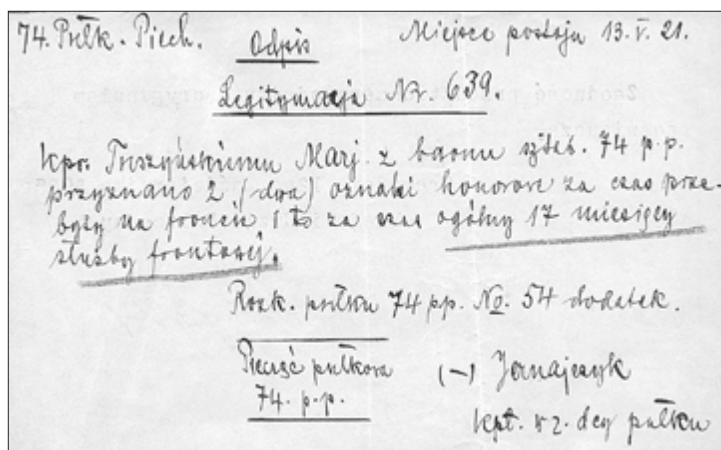 74. Pułk. Piech. Odpis Miejsce postoju 13.V.21.
Legitymacja Nr. 639.
kpr. Marj. z baonu sztab. 74 p.p.
przyznano 2 (dwa) oznaki honorowe za czas prze-
były na froncie i to za czas ogólny 17 miesięcy
służby frontowej.
Rozk. pułku 74 pp. No. 54 dodatek.
Pieczęć pułkowa
74. p.p.
(-)
kpt. w z. dcy pułku